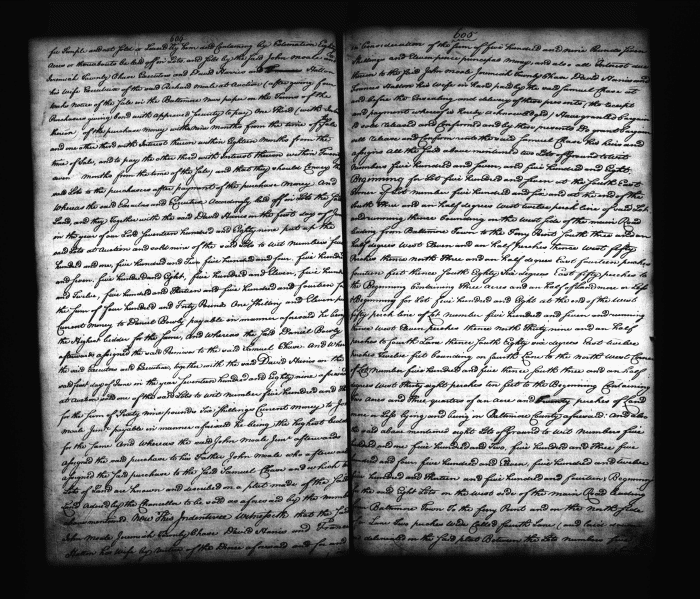 604
fee Simple and not sold or Leased by him and Containing by Estimation Eighty
Acres or thereabouts be laid off in Lots and sold by the said John Moale and
Jeremiah Townly Chase Executors and David Harris and Harris
his wife Executrix of the said Richard Moale at Auction (after giving four
weeks notice of the Sale in the Baltimore News paper on the Terms of the
Purchasers giving bond with approved security to pay One third (with
thereon of the purchase Money within nine Months from the time of Sale
and one other third with Interest thereon within Eighteen Months from the
time of Sale, and to pay the other third with Interest thereon within Twenty
seven Months from the time of the Sale) and that they should Convey the
said Lots to the purchasers after payment of the purchase Money. And
Whereas the said Executors and Executrix Accordingly laid off in Lots the said
Land, and they Together with the said David Harris on the first day of June
in the year of our Lord Seventeen hundred and Eighty nine put up the
said Lots at Auction and sold nine of the said Lots to wit Numbers five
hundred and one, five hundred and Two five hundred and four five hundred
and seven, five hundred and Eight, five hundred and Eleven, five hundred
and Twelve, five hundred and Thirteen and five hundred and fourteen for
the Sum of four hundred and Forty Pounds One Shilling and Eleven pence
Current Money to Daniel Bowly payable in manner aforesaid he being
the Highest bidder for the same, and Whereas the said Daniel Bowly
afterwards assigned the said Premises to the said Samuel Chase and Whereas
the said Executors and Executrix, together with the said David Harris on the
said first day of June in the year seventeen hundred and Eighty nine aforesaid
at Auction sold one of the said Lots to wit Number five hundred and
for the Sum of Forty nine pounds Six Shillings Current Money to John
Moale Junr. payable in manner aforesaid he being the highest bidder
for the Same And Whereas the said John Moale Junr. afterwards
assigned the said purchase to his Father John Moale who afterwards
assigned the said purchase to the said Samuel Chase and which said
Lots of Land are known and described on a plat made of the said
Land Ordered by the Chancellor to be sold as aforesaid by the numbers
aforementioned Now This Indenture Witnesseth that the said
John Moale Jeremiah Townly Chase David Harris and Frances
Harris his Wife by virtue of the Decree aforesaid and for and
605
in Consideration of the Sum of five hundred and nine Pounds seven
Shillings and Eleven pence principal Money, and also all Interest due
thereon to the said John Moale Jeremiah Townly Chase David Harris and
Frances Harris his wife in hand paid by the said Samuel Chase at
and before the Ensealing and delivery of these presents, the receipt
and payment whereof is hereby acknowledged, Have granted bargained
sold released and Confirmed and by these presents Do grant bargain
sell release and Confirm unto the said Samuel Chase his heirs and
assigns All the said above mentioned two Lots of Ground to wit
Numbers five hundred and seven, and five hundred and Eight
Beginning for Lot five hundred and seven at the South East
Corner of Lot number five hundred and five and at the end of the
South three and an half degrees West twelve perch line of said Lot
and running thence bounding on the West side of the main Road
leading from Baltimore Town to the Ferry Point South three and an
half degrees West Eleven and an half perches thence West fifty
Perches thence North three and an half degrees East fourteen perches
fourteen feet thence South Eighty Six degrees East fifty perches to
the Beginning Containing three Acres and an half of Land more or less
Beginning for Lot five hundred and Eight at the end of the West
fifty perch line of Lot number five hundred and seven and running
thence West Eleven perches thence North thirty nine and an half
perches to fourth Lane thence South Eighty six degrees East twelve
perches twelve feet bounding on fourth Lane to the North West Corner
of Lot number five hundred and five thence South three and an half
degrees West thirty Eight perches ten feet to the Beginning Containing
two Acres and three quarters of an Acre and perches of Land
more or less lying and being in Baltimore County aforesaid. And also
the said above mentioned eight Lots of Ground to wit Numbers five
hundred and one five hundred and Two, five hundred and three five
hundred and four five hundred and Eleven, five hundred and twelve
five hundred and thirteen and five hundred and fourteen Beginning
for the said Eight Lots on the West side of the main Road leading
from Baltimore Town To the Ferry Point and on the North side
of a Lane Two perches wide Called fourth Lane (and laid down
or delineated on the said plat Between the Lots Numbers five